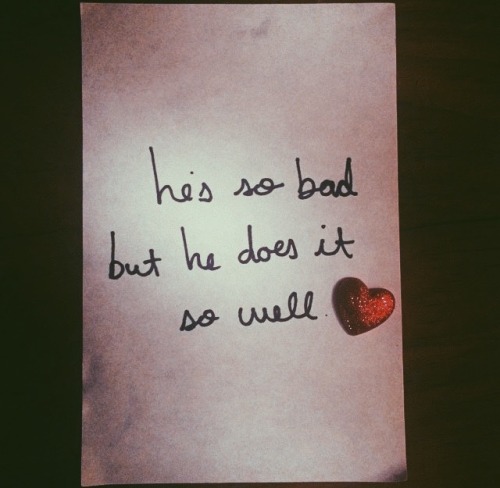 he's so bad
but he does it
so well.